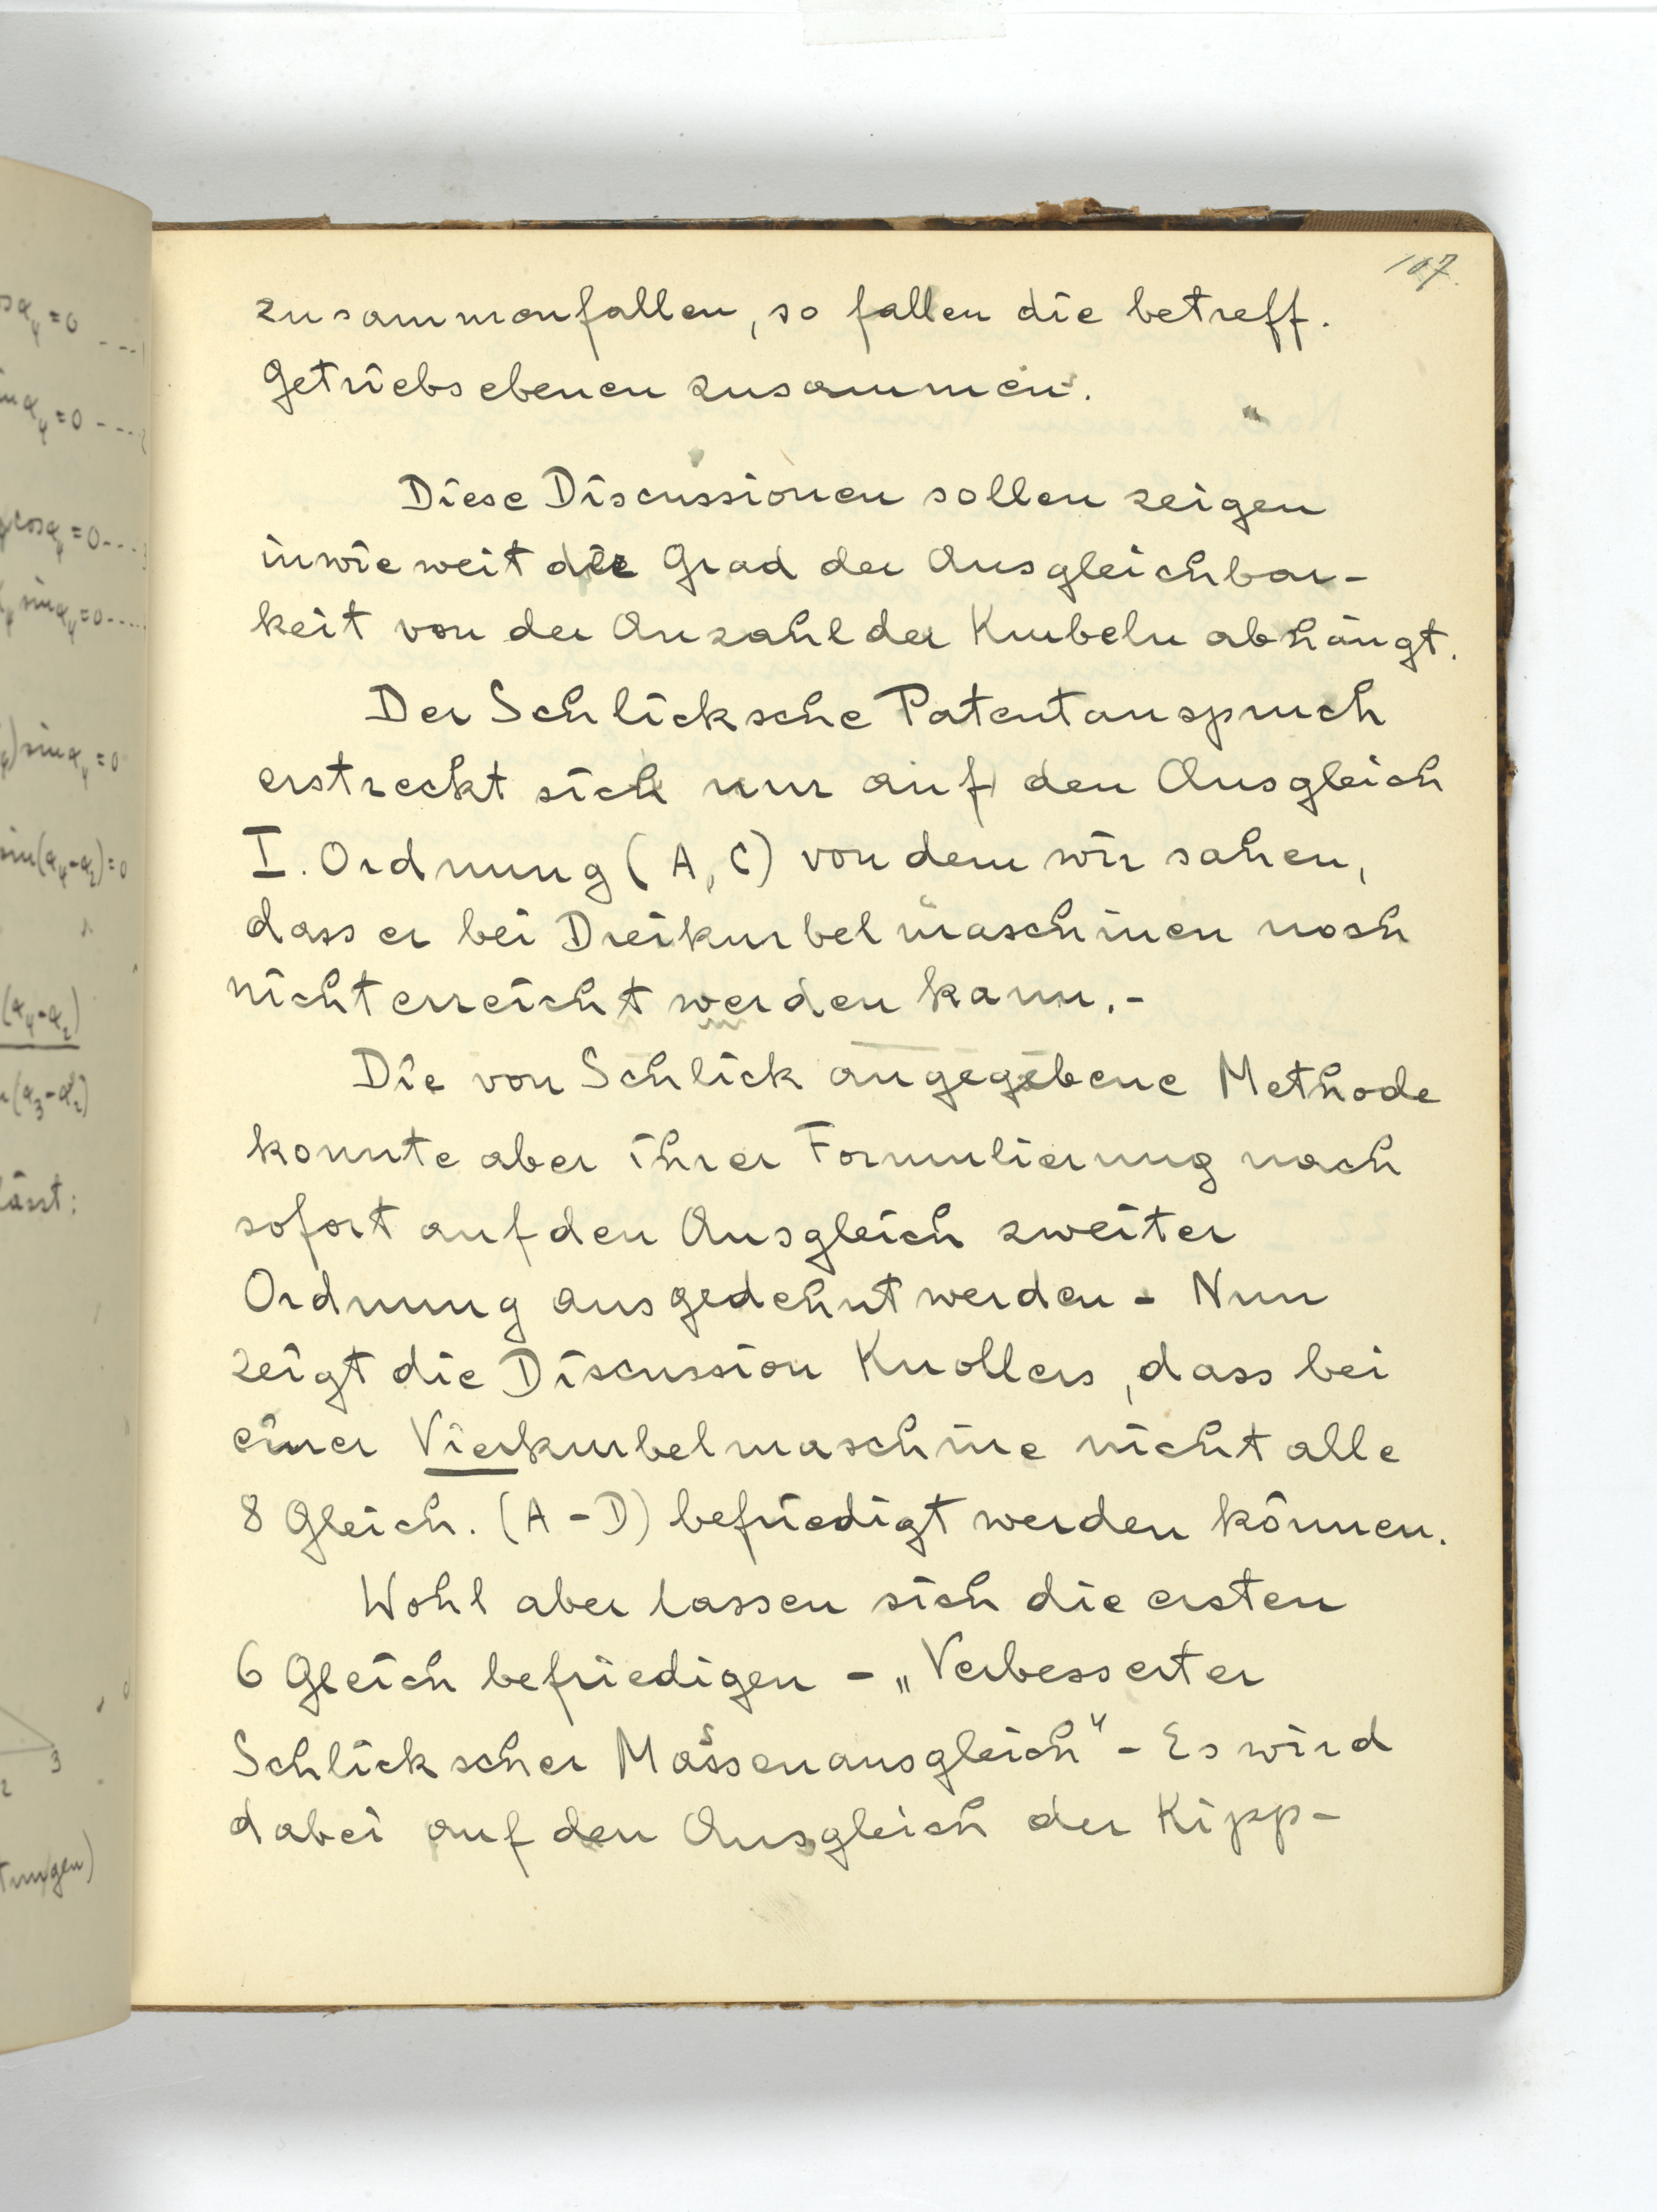 107.
zusammenfallen, so fallen die betreff.
Getriebsebenen zusammen.
Diese Discussionen sollen zeigen
inwieweit die Grad der Ausgleichbar-
keit von der Anzahl der Kurbeln abhängt.
Der Schlicksche Patentanspruch
erstreckt sich nur auf den Ausgleich
I. Ordnung (A, C) von dem wir sahen,
dass er bei Dreikurbelmaschinen noch
nicht erreicht werden kann.-
Die von Schlick angegebene Methode
konnte aber ihrer Formulierung nach
sofort auf den Ausgleich zweiter
Ordnung ausgedehnt werden - Nun
zeigt die Discussion Knollers, dass bei
einer Vierkurbelmaschine nicht alle
8 Gleich. (A-D) befriedigt werden können.
Wohl aber lassen sich die ersten
6 Gleich befriedigen - „Verbesserter
Schlickscher Massenausgleich" - Es wird
dabei auf den Ausgleich der Kipp-